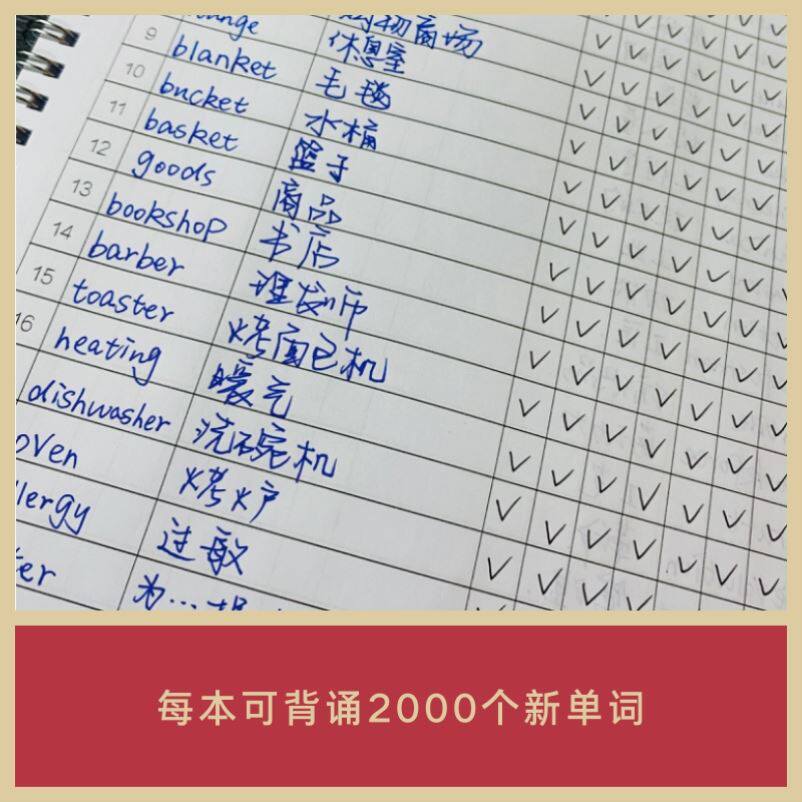 购物商场
unge 休息室
9 blanket 毛毯
10 bucket 水桶
11 basket 篮子
12 goods 商品
13 bookshop 书店
14 barber 理发师
15 toaster 烤面包机
16 heating 暖气
dishwasher 洗碗机
oven 烤炉
lergy 过敏
er 为...提
每本可背诵2000个新单词